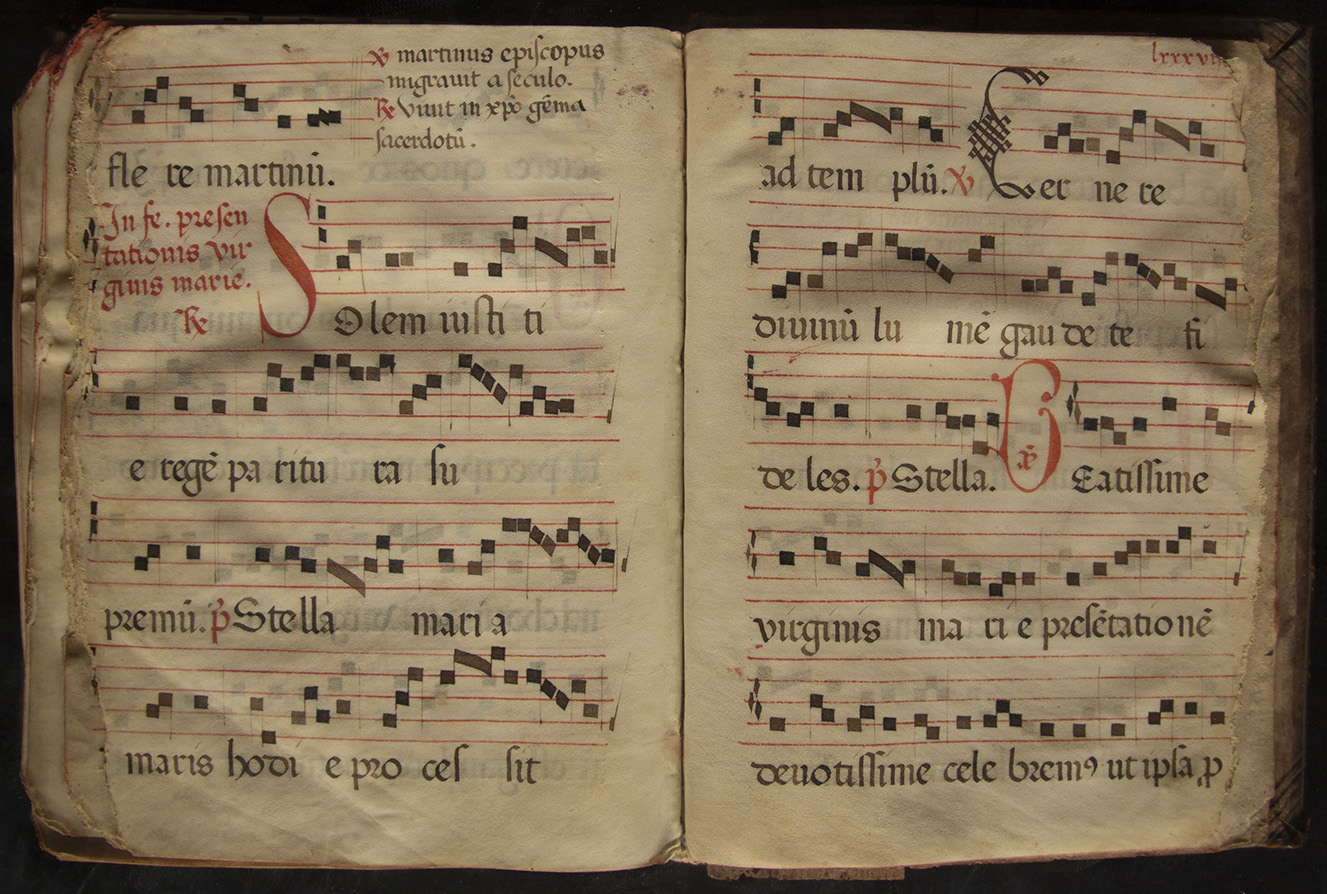 ℣ martinus epiſcopus
migrauit a ſeculo.
℟ Viuit in xp̄o gēma
ſacerdotū.
fle re martinū.
In fe. preſen
tationis vir
ginis marie.
℟
S Olem iuſti ti
e regē pa ritu ra ſu
premū. p̄ Stella mari a
maris hodi e pro ceſ ſit
lxxxvii
ad tem plū. ℣ Cer ne re
diuinū lu mē gau de te fi
de les. p̄ Stella. ℣ B Eatiſſime
virginis ma ri e preſētatio nē
deuotiſſime cele bremꝰ ut ipſa ꝓ